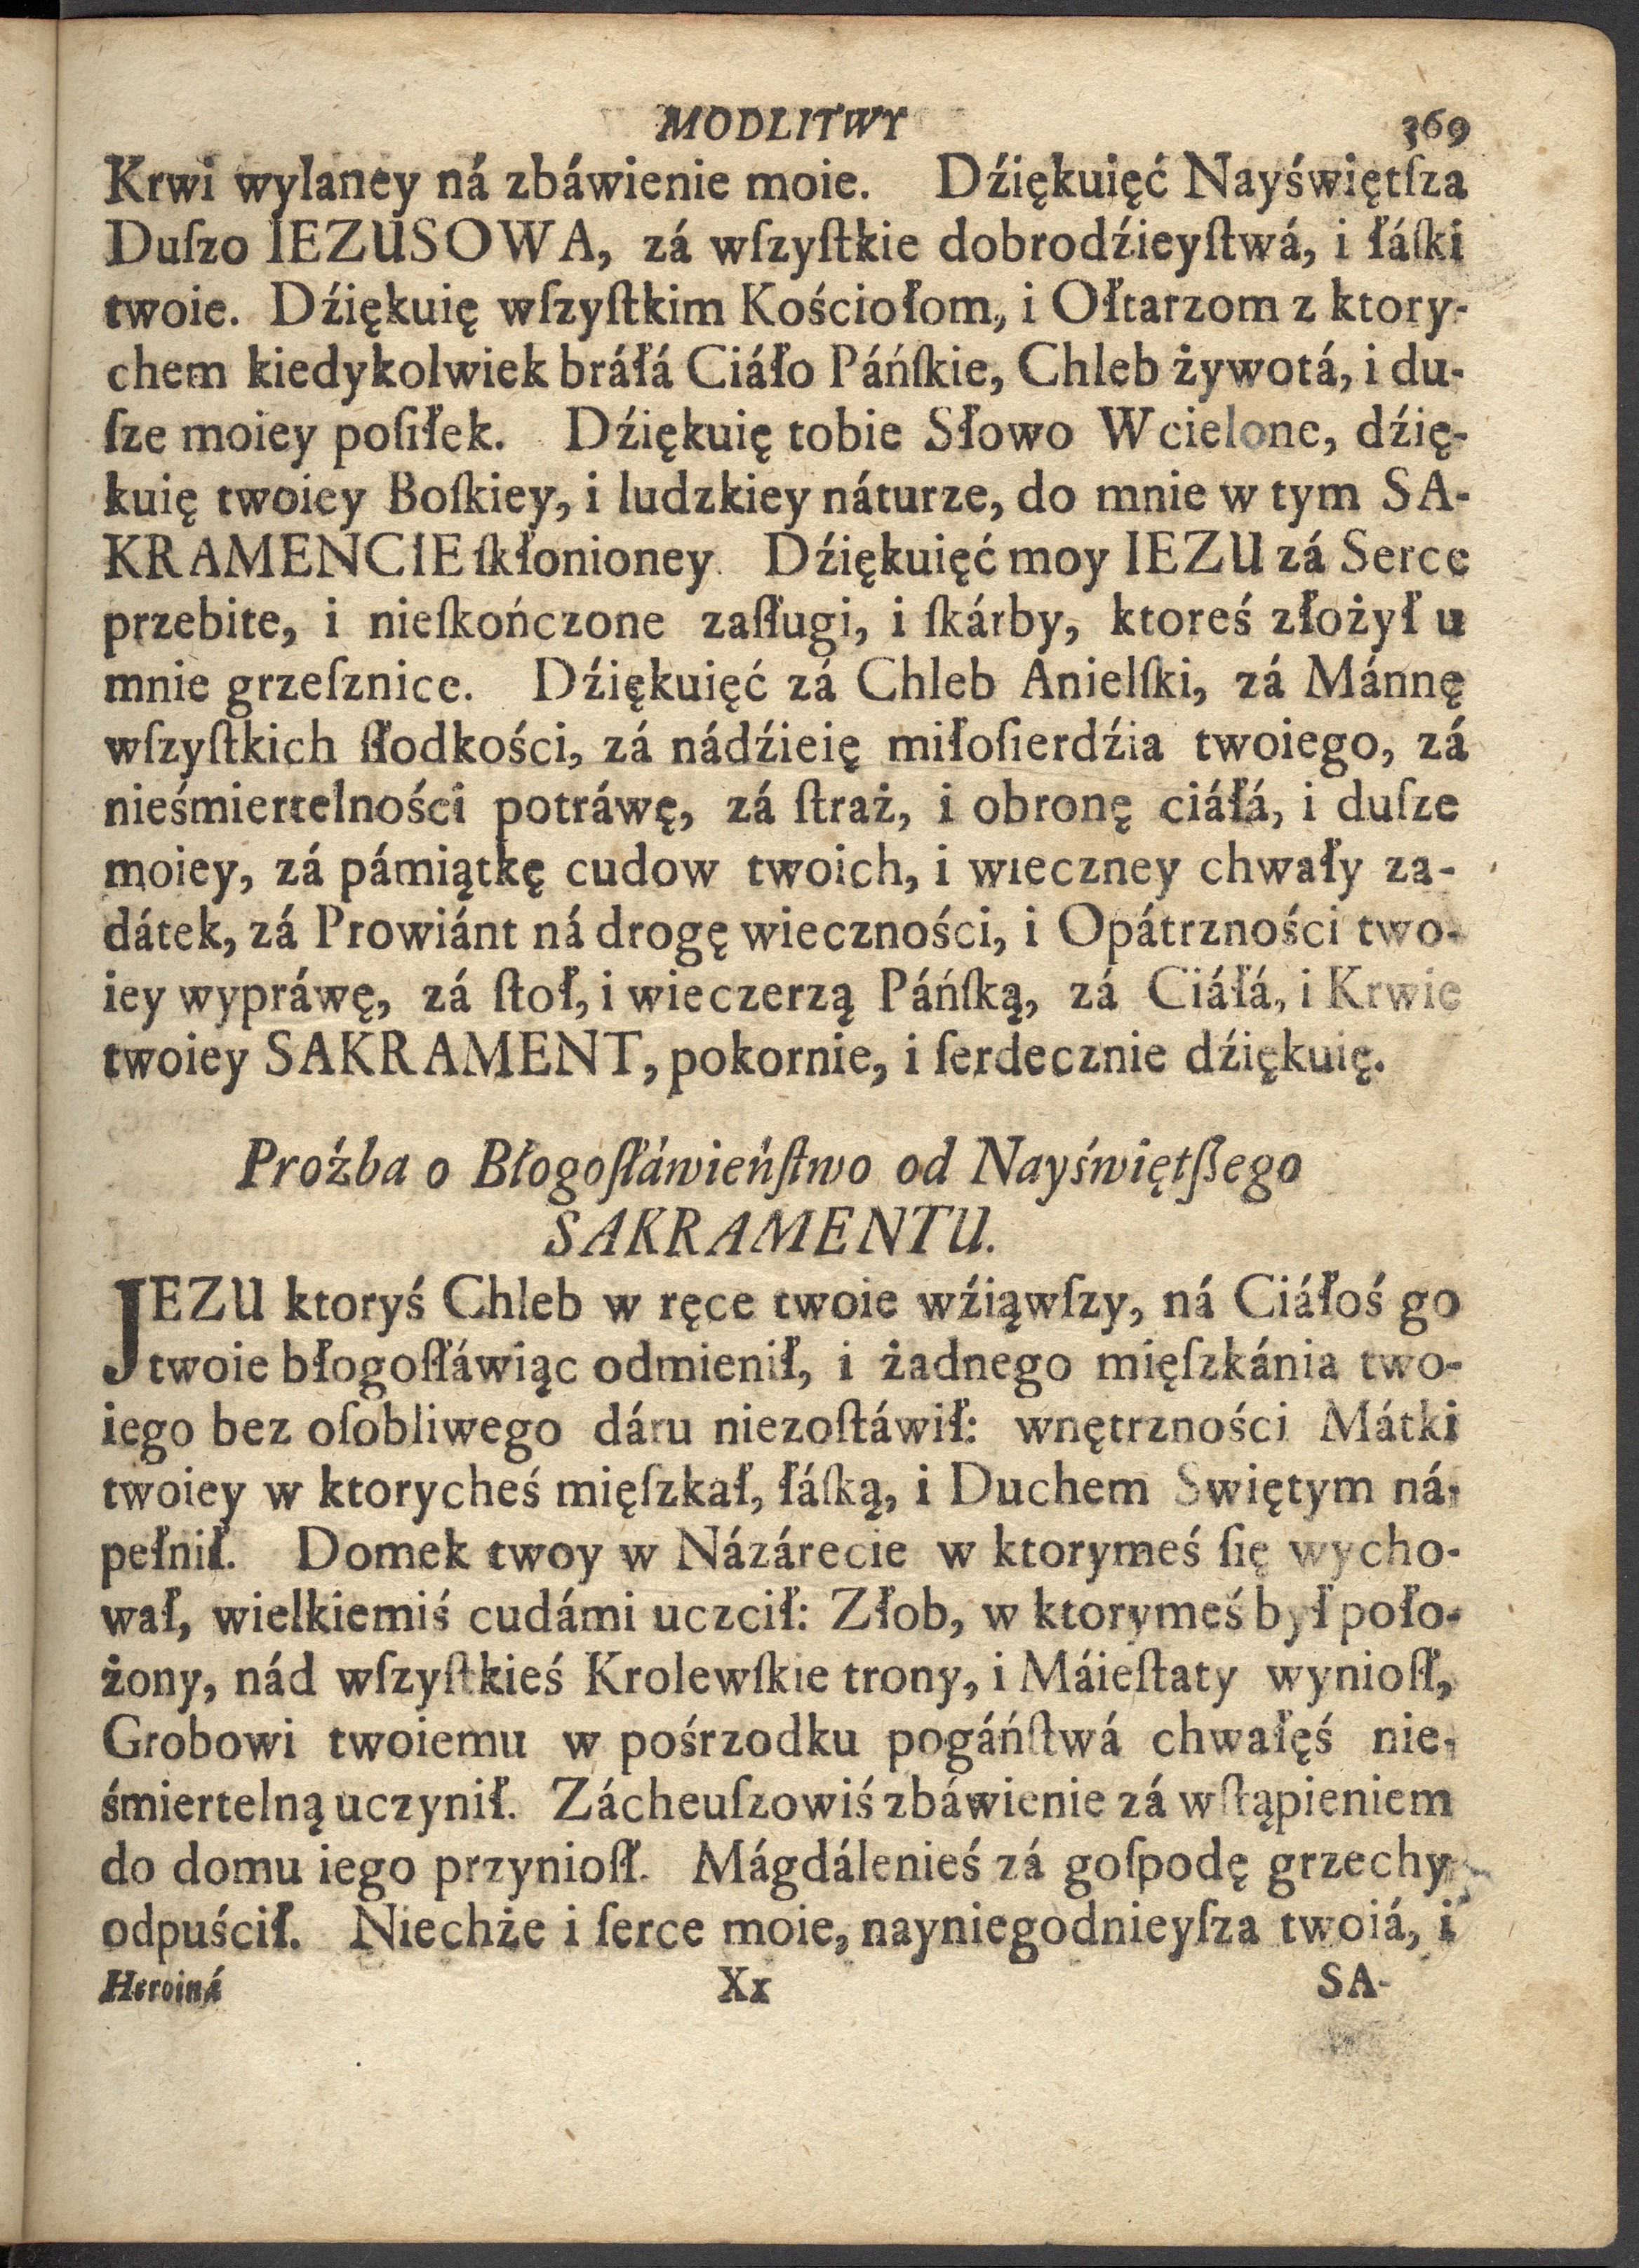 MODLITWY 369
Krwi wylaney ná zbáwienie moie. Dźiękuięć Nayświętſza
Duſzo IEZUSOWA, zá wſzyſtkie dobrodźieyſtwá, i łáſki
twoie. Dźiękuię wſzyſtkim Kościołom, i Ołtarzom z ktory-
chem kiedykolwiek bráłá Ciáło Páńſkie, Chleb żywotá, i du-
ſze moiey poſiłek. Dźiękuię tobie Słowo Wcielone, dźię-
kuię twoiey Boſkiey, i ludzkiey náturze, do mnie w tym SA-
KRAMENCIE ſkłonioney. Dźiękuięć moy IEZU zá Serce
przebite, i nieſkończone zaſługi, i ſkárby, ktoreś złożył u
mnie grzeſznice. Dźiękuięć zá Chleb Anielſki, zá Mánnę
wſzyſtkich ſłodkości, zá nádźieię miłoſierdźia twoiego, zá
nieśmiertelności potráwę, zá ſtraż, i obronę ciáłá, i duſze
moiey, zá pámiątkę cudow twoich, i wieczney chwały za-
dátek, zá Prowiánt ná drogę wieczności, i Opátrzności two-
iey wypráwę, zá ſtoł, i wieczerzą Páńſką, zá Ciáłá, i Krwie
twoiey SAKRAMENT, pokornie, i ſerdecznie dźiękuię.
Proźba o Błogoſłáwieńſtwo od Nayświętſzego
SAKRAMENTU.
JEZU ktoryś Chleb w ręce twoie wźiąwſzy, ná Ciáłoś go
twoie błogoſłáwiąc odmienił, i żadnego mięſzkánia two-
iego bez oſobliwego dáru niezoſtáwił: wnętrzności Mátki
twoiey w ktorycheś mięſzkał, łáſką, i Duchem Swiętym ná-
pełnił. Domek twoy w Názárecie w ktorymeś ſię wycho-
wał, wielkiemiś cudámi uczcił: Złob, w ktorymeś był poło-
żony, nád wſzyſtkieś Krolewſkie trony, i Máieſtaty wynioſł,
Grobowi twoiemu w pośrzodku pogáńſtwá chwałęś nie-
śmiertelną uczynił. Zácheuſzowiś zbáwienie zá wſtąpieniem
do domu iego przynioſł. Mágdálenieś zá goſpodę grzechy
odpuścił. Niechże i ſerce moie, nayniegodnieyſza twoiá, i
Heroiná Xx SA-